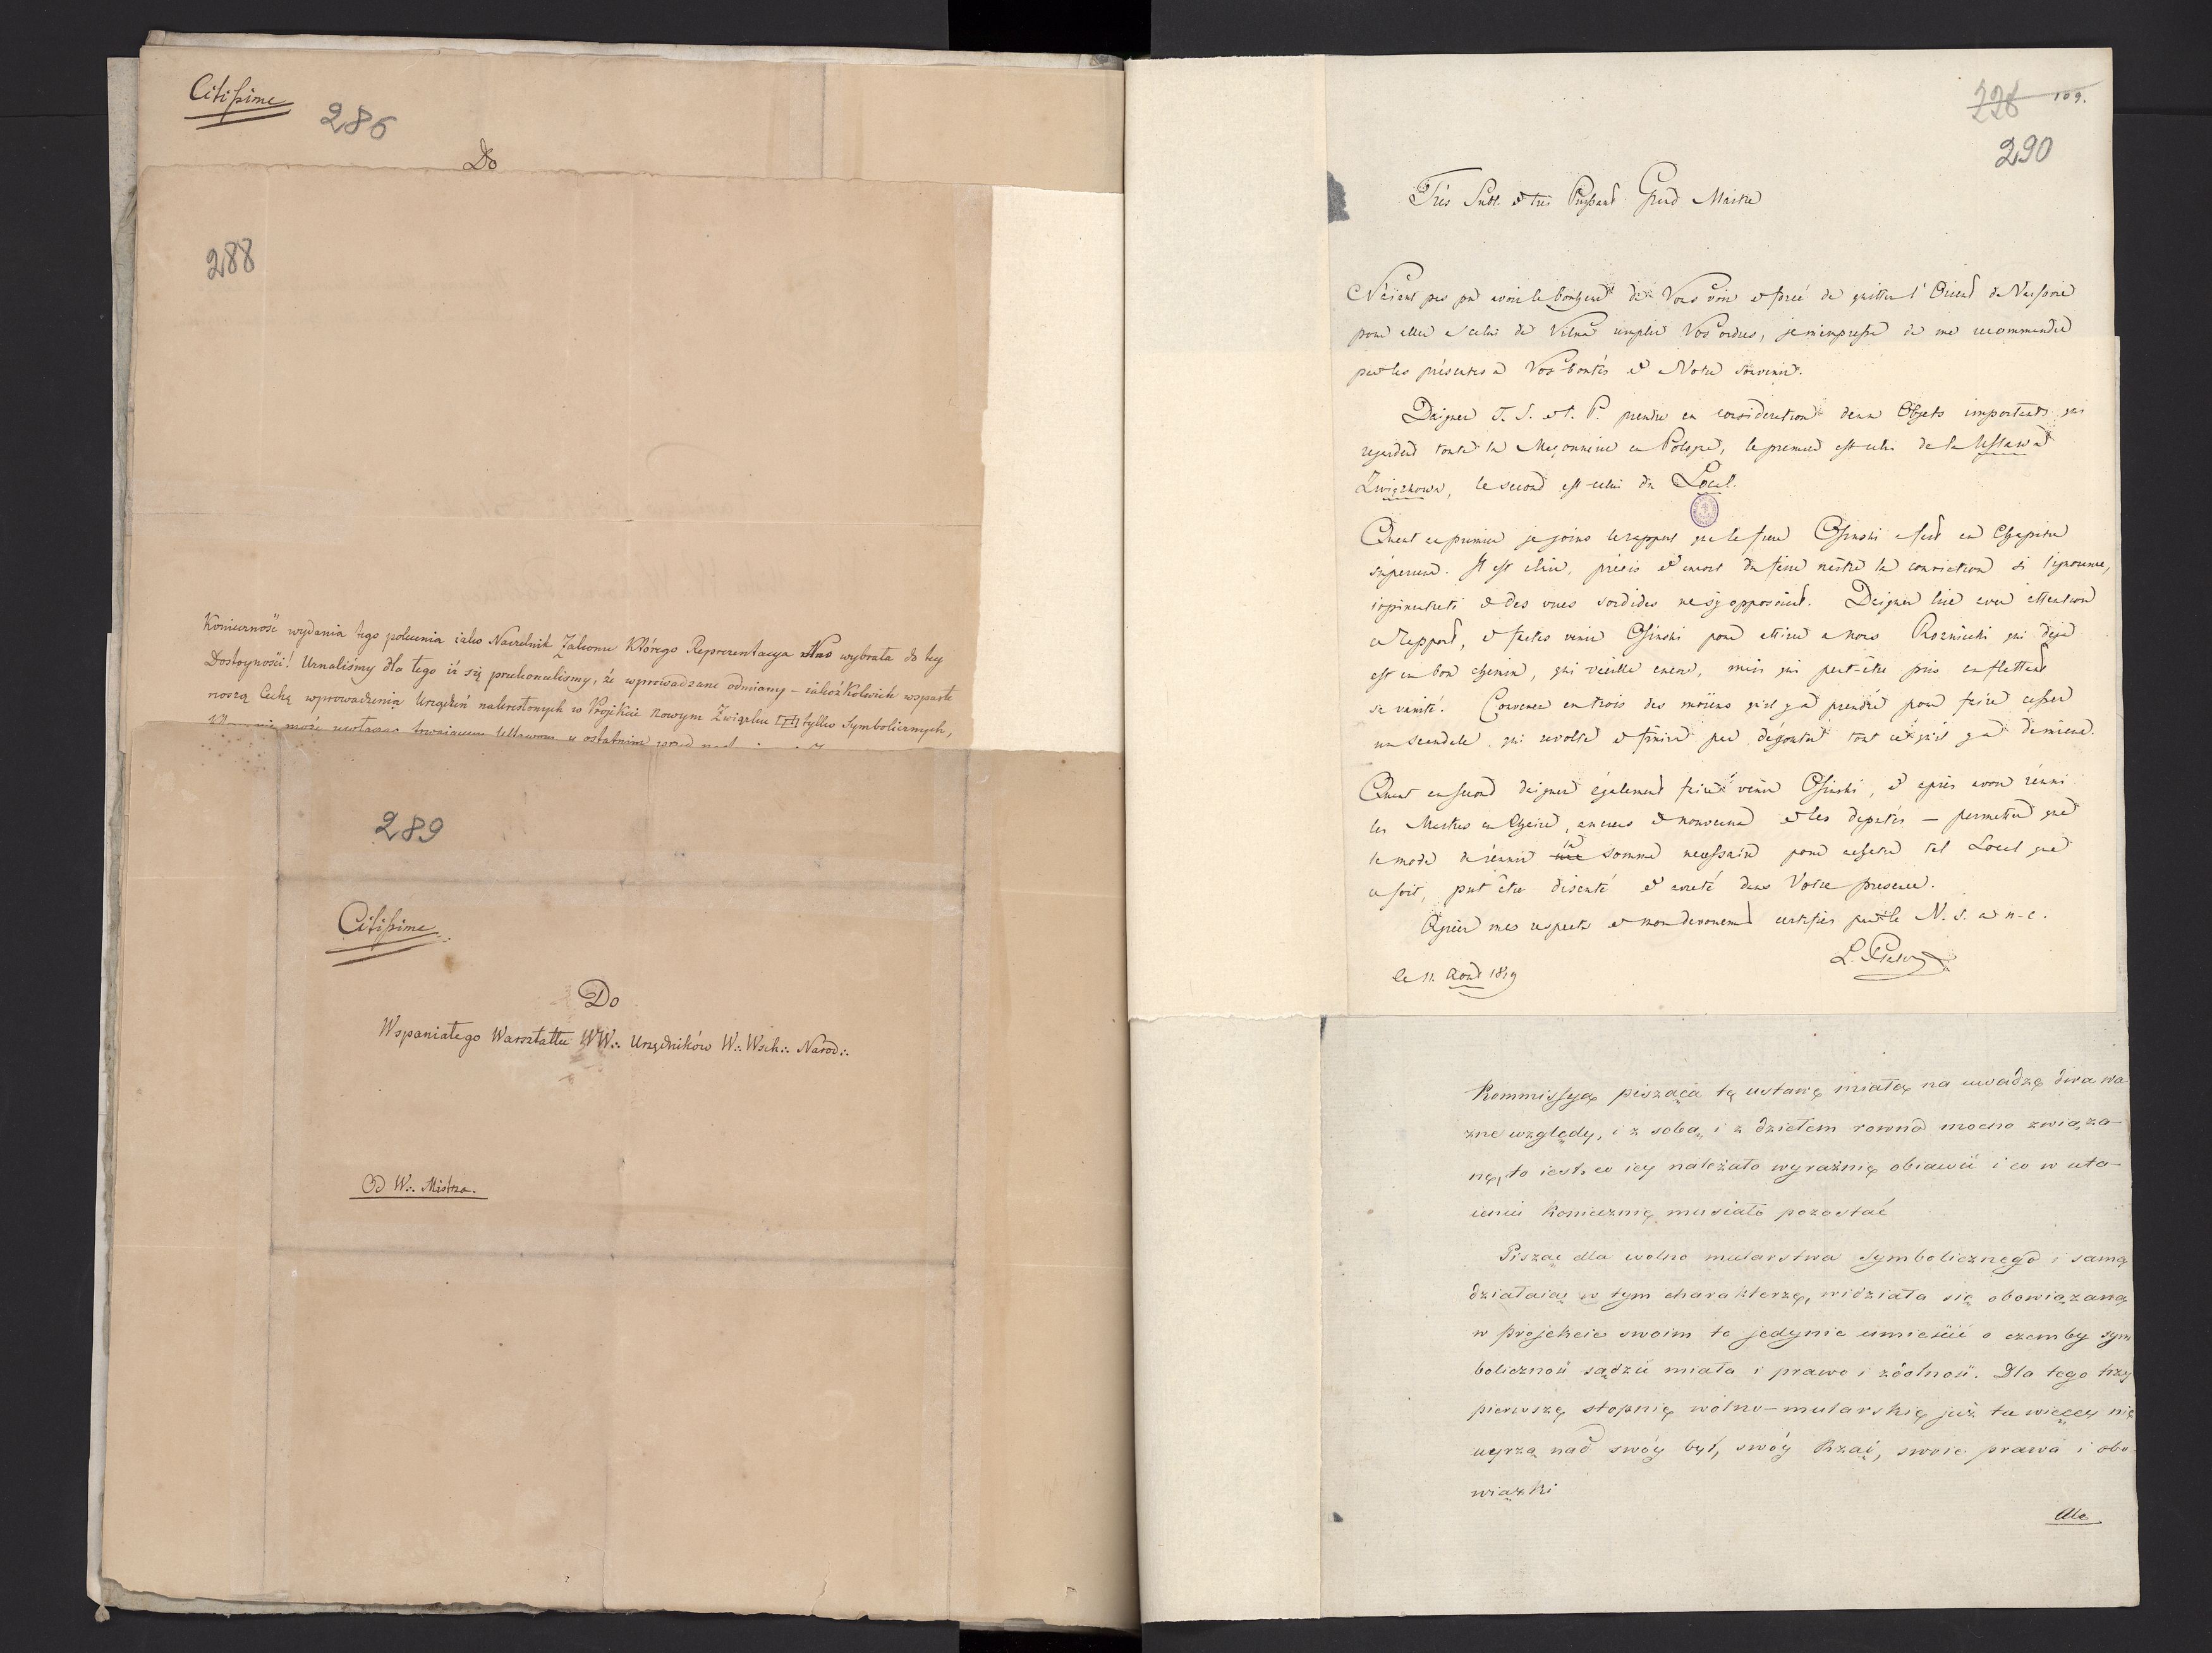 Citissime
286
Do
288
Konieczność wydania tego polecenia iako Naczelnik Zakonu Którego Reprezentacya Nas wybrała do tey
Dostoyności! Uznaliśmy dla tego iż się przekonaliśmy, że wprowadzane odmiany – iakożkolwiek wsparte
noszą Cechę wprowadzenia Urządzeń nakreślonych w Projekcie nowym Związku tylko Symbolicznych,
289
Citissime
Do
Wspaniałego Warsztattu WW∴ Urzędników W∴ Wsch∴ Narod∴
Od W∴ Mistrza.
228 109.
290
Très Subl. et très Puissant Grand Maitre
N'aiant pas pu avoir le bonheur de Vous voir et forcé de quitter l'Orient de Varsovie
pour aller a celui de Vilna remplir Vos ordres, je m'empresse de me recommander
par les présentes a Vos bontés et Votre souvenir.
Daignez T. S. et t. P. prendre en consideration deux Objets importants qui
regardent toute la Maçonnerie en Pologne, le premier est celui de la Ustawa
Związkowa, le second est celui du Local.
Quant au premier je joins le rapport que le frere Osinski a fait au Chapitre
superieur. Il est clair, précis et devroit faire naitre la conviction si l'ignorance,
et des vues sordides ne s'y opposoient. Daignez lire avec attention
ce rapport, et faites venir Osinski pour attirer a nous Rozniecki qui deja
est en bon chemin, qui vacille encore, mais qui peut-être pris en flattant
sa vanité. Convenez en trois des moiens qu'il y a a prendre pour faire cesser
un scandale, qui revolte et finira par dégouter tout ce qu'il y a de mieux.
Quant au second daignez également faire venir Osinski, et après avoir réuni
les Maitres en Chaire, anciens et nouveaux et les deputés – permettez que
le mode de réunir la somme necessaire pour acheter tel Local que
ce soit, put être discuté et arreté dans Votre presence.
Agréez mes respects et mon devouement certifiés par le N. s. a. n. c.
L. Plater
le 11. Aout 1819
Kommissya pisząca tę ustawę miała na uwadze dwa wa-
żne względy, i z sobą i z dziełem rowno mocno związa-
ne, to iest: co iey należało wyraźnie obiawić i co w uta-
ieniu koniecznie musiało pozostać
Pisząc dla wolno mularstwa symbolicznego i sama
działaiąc w tym charakterze, widziała się obowiązaną
w projekcie swoim to jedynie umieścić o czemby sym
boliczność sądzić miała i prawo i zdolność. Dla tego trzy
pierwsze stopnie wolno-mularskie już tu więcey nie
uyrzą nad swóy byt, swóy Rząd, swoie prawa i obo-
wiązki
Ale